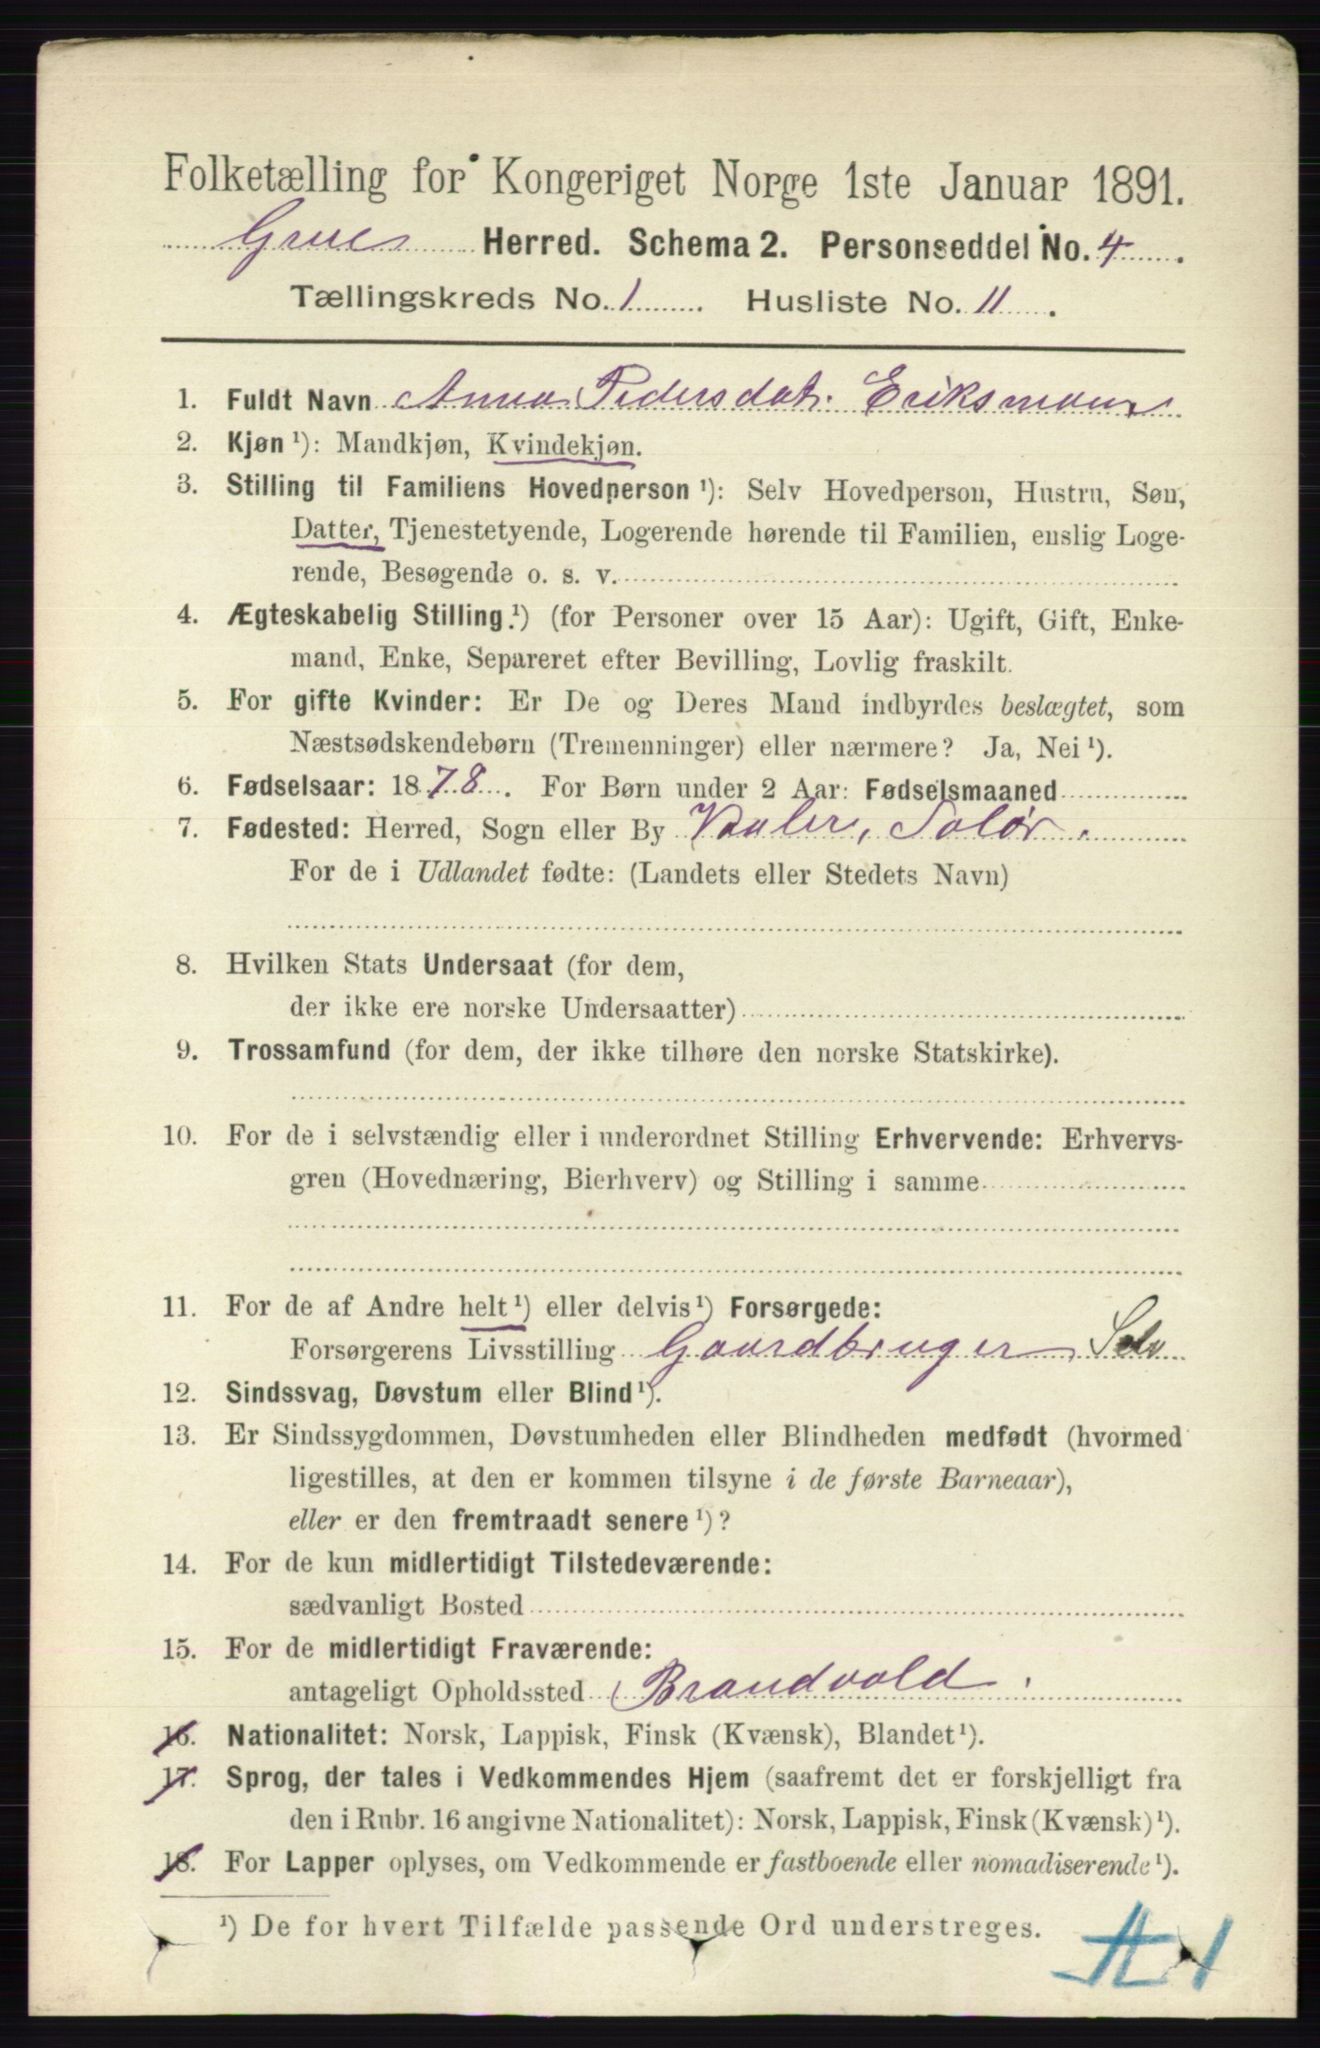 Folketælling for Kongeriget Norge 1ste Januar 1891.
Grue Herred. Schema 2. Personseddel No. 4.
Tællingskreds No. 1 Husliste No. 11.
1. Fuldt Navn Anna Pedersdat. Eriksmoen
2. Kjøn ¹): Mandkjøn, Kvindekjøn.
3. Stilling til Familiens Hovedperson ¹): Selv Hovedperson, Hustru, Søn,
Datter, Tjenestetyende, Logerende hørende til Familien, enslig Loge-
rende, Besøgende o. s. v.
4. Ægteskabelig Stilling.¹) (for Personer over 15 Aar): Ugift, Gift, Enke-
mand, Enke, Separeret efter Bevilling, Lovlig fraskilt.
5. For gifte Kvinder: Er De og Deres Mand indbyrdes beslægtet, som
Næstsødskendebørn (Tremenninger) eller nærmere? Ja, Nei ¹).
6. Fødselsaar: 1878. For Børn under 2 Aar: Fødselsmaaned
7. Fødested: Herred, Sogn eller By Vaaler, Solør.
For de i Udlandet fødte: (Landets eller Stedets Navn)
8. Hvilken Stats Undersaat (for dem,
der ikke ere norske Undersaatter)
9. Trossamfund (for dem, der ikke tilhøre den norske Statskirke).
10. For de i selvstændig eller i underordnet Stilling Erhvervende: Erhvervs-
gren (Hovednæring, Bierhverv) og Stilling i samme
11. For de af Andre helt ¹) eller delvis ¹) Forsørgede:
Forsørgerens Livsstilling Gaardbruger Selv
12. Sindssvag, Døvstum eller Blind ¹).
13. Er Sindssygdommen, Døvstumheden eller Blindheden medfødt (hvormed
ligestilles, at den er kommen tilsyne i de første Barneaar),
eller er den fremtraadt senere ¹)?
14. For de kun midlertidigt Tilstedeværende:
sædvanligt Bosted
15. For de midlertidigt Fraværende:
antageligt Opholdssted Brandvold.
16. Nationalitet: Norsk, Lappisk, Finsk (Kvænsk), Blandet ¹).
17. Sprog, der tales i Vedkommendes Hjem (saafremt det er forskjelligt fra
den i Rubr. 16 angivne Nationalitet): Norsk, Lappisk, Finsk (Kvænsk) ¹).
18. For Lapper oplyses, om Vedkommende er fastboende eller nomadiserende ¹).
¹) De for hvert Tilfælde passende Ord understreges.